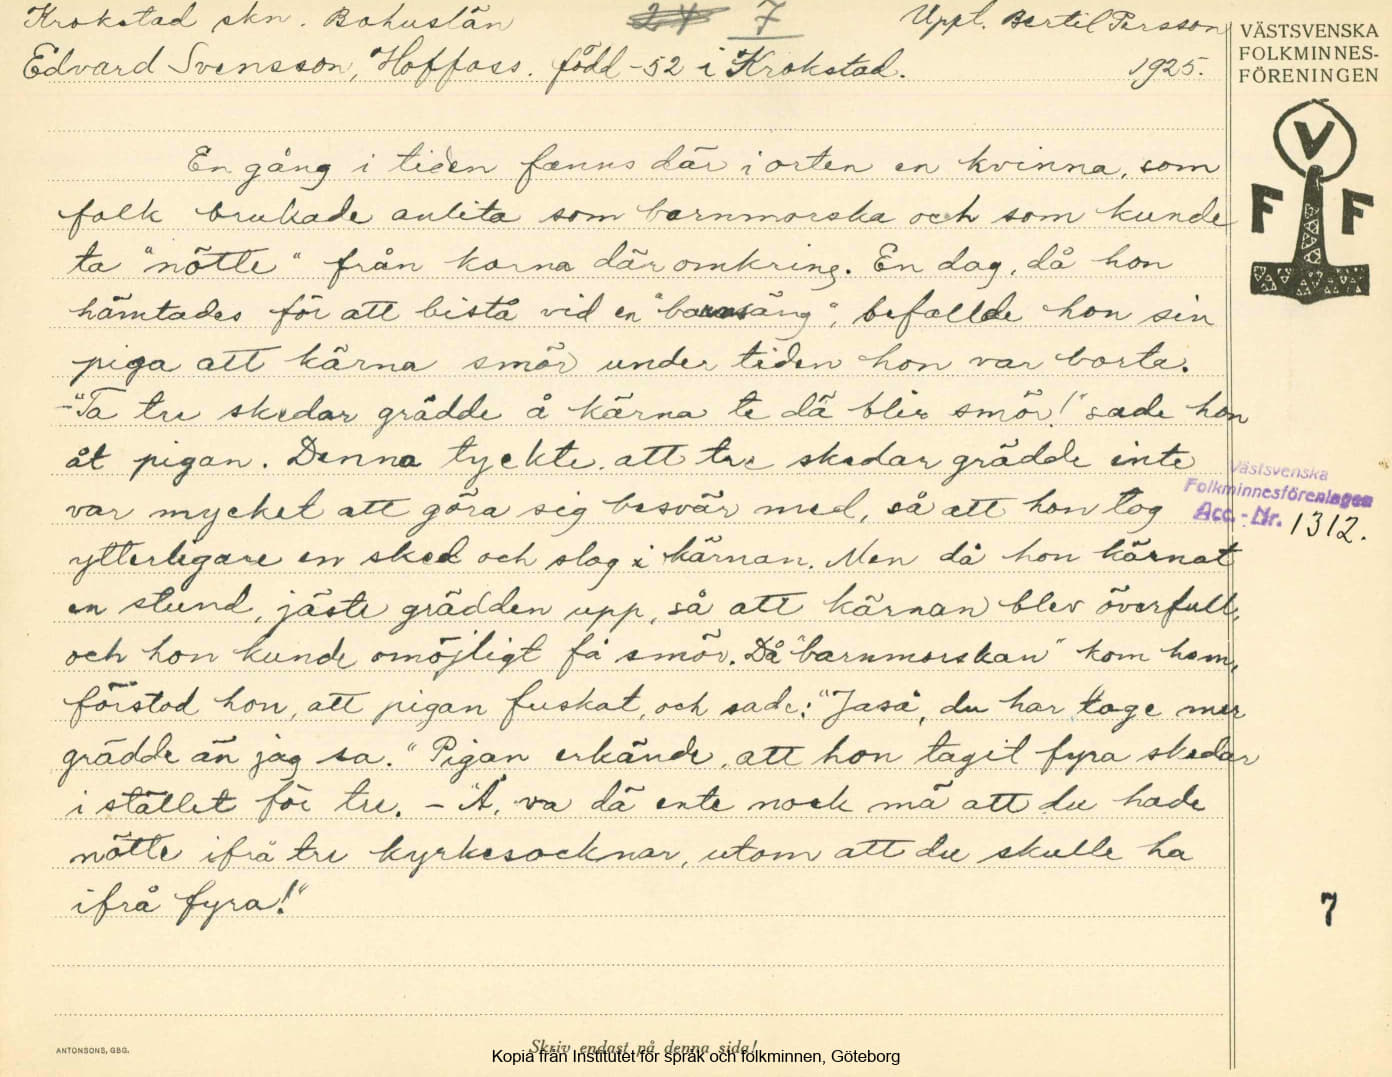 Krokstad skn. Bohuslän
7
Uppt. Bertil Persson
Edvard Svensson, Hoffass. född -52 i Krokstad.
1925.
VÄSTSVENSKA
FOLKMINNES-
FÖRENINGEN
V
F F
En gång i tiden fanns där i orten en kvinna, som
folk brukade anlita som barnmorska och som kunde
ta "nötte" från korna däromkring. En dag, då hon
hämtades för att bistå vid en "barnsäng", befallde hon sin
piga att kärna smör under tiden hon var borta.
-"Ta tre skedar grädde å kärna te dä blir smör!" sade hon
åt pigan. Denna tyckte att tre skedar grädde inte
var mycket att göra sig besvär med, så att hon tog
ytterligare en sked och slog i kärnan. Men då hon kärnat
en stund, jäste grädden upp, så att kärnan blev överfull,
och hon kunde omöjligt få smör. Då "barnmorskan" kom hem,
förstod hon, att pigan fuskat, och sade: "Jaså, du har tage mer
grädde än jag sa." Pigan erkände, att hon tagit fyra skedar
i stället för tre. - "Å, va dä ente nock mä att du hade
nötte ifrå tre kyrkesocknar, utom att du skulle ha
ifrå fyra!"
Västsvenska
Folkminnesföreningen
Acc.-Nr. 1312.
7
ANTONSONS, GBG.
Skriv endast på denna sida!
Kopia från Institutet för språk och folkminnen, Göteborg